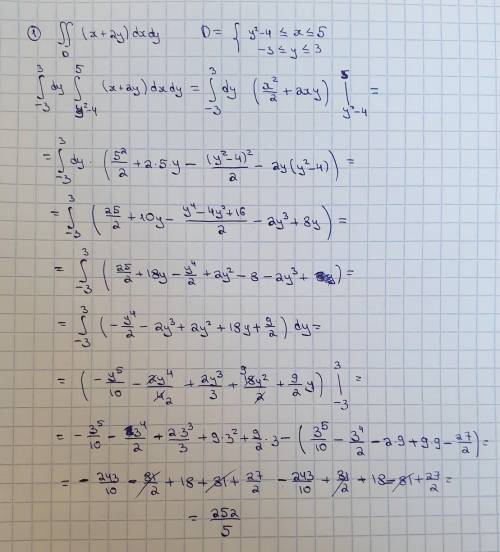 ① ∬_D (x+2y)dxdy D = { y²-4 ≤ x ≤ 5
-3 ≤ y ≤ 3
∫_{-3}^{3} dy ∫_{y²-4}^{5} (x+2y)dxdy = ∫_{-3}^{3} dy (x²/2 + 2xy) |_{y²-4}^{5} =
= ∫_{-3}^{3} dy · (5²/2 + 2·5·y - (y²-4)²/2 - 2y(y²-4)) =
= ∫_{-3}^{3} (25/2 + 10y - (y⁴-4y²+16)/2 - 2y³ + 8y) =
= ∫_{-3}^{3} (25/2 + 18y - y⁴/2 + 2y² - 8 - 2y³ + ) =
= ∫_{-3}^{3} (-y⁴/2 - 2y³ + 2y² + 18y + 9/2) dy =
= (-y⁵/10 - 2y⁴/4 2 + 2y³/3 + 9 18y²/2 + 9/2 y) |_{-3}^{3} =
= -3⁵/10 - 3⁴/2 + 2·3³/3 + 9·3² + 9/2·3 - (3⁵/10 - 3⁴/2 - 2·9 + 9·9 - 27/2) =
= -243/10 - 81/2 + 18 + 81 + 27/2 - 243/10 + 81/2 + 18 - 81 + 27/2 =
= 252/5